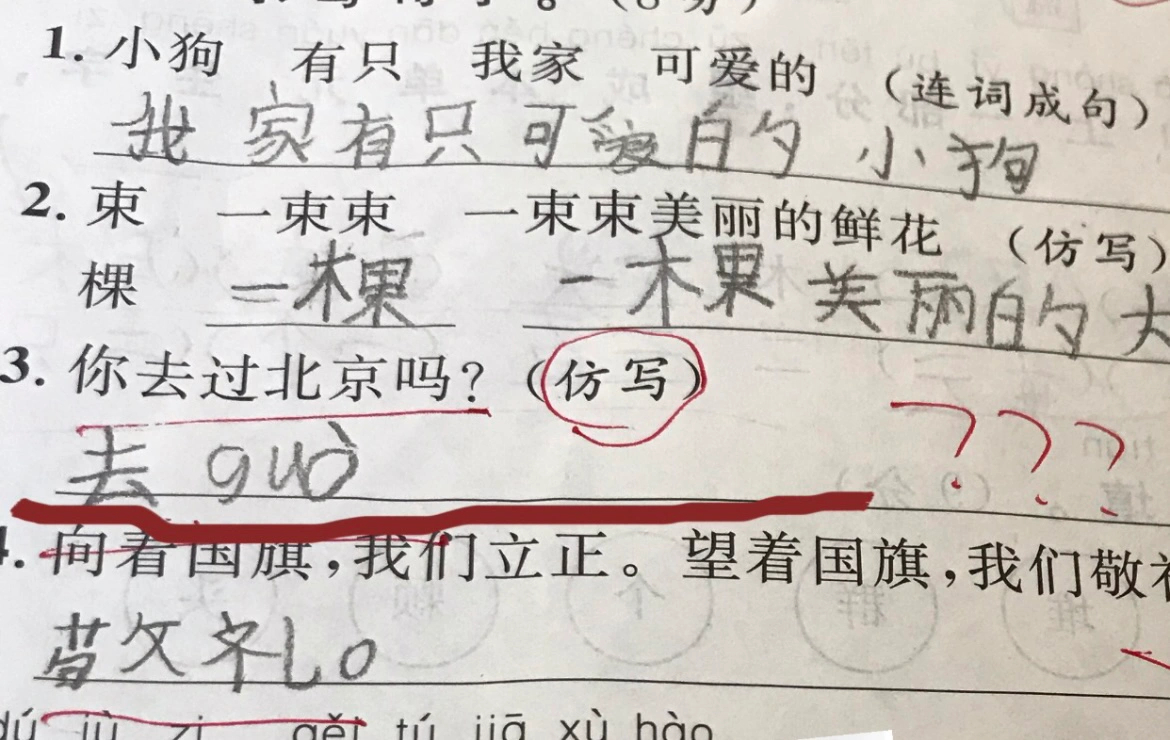 1. 小狗 有只 我家 可爱的 (连词成句)
我家有只可爱的小狗
2. 束 一束束 一束束美丽的鲜花 (仿写)
棵 一棵 一棵美丽的大
3. 你去过北京吗? (仿写)
去 guò
???
4. 向着国旗,我们立正。望着国旗,我们敬礼
敬礼。
dú jù zi gěi tú jiā xù hào